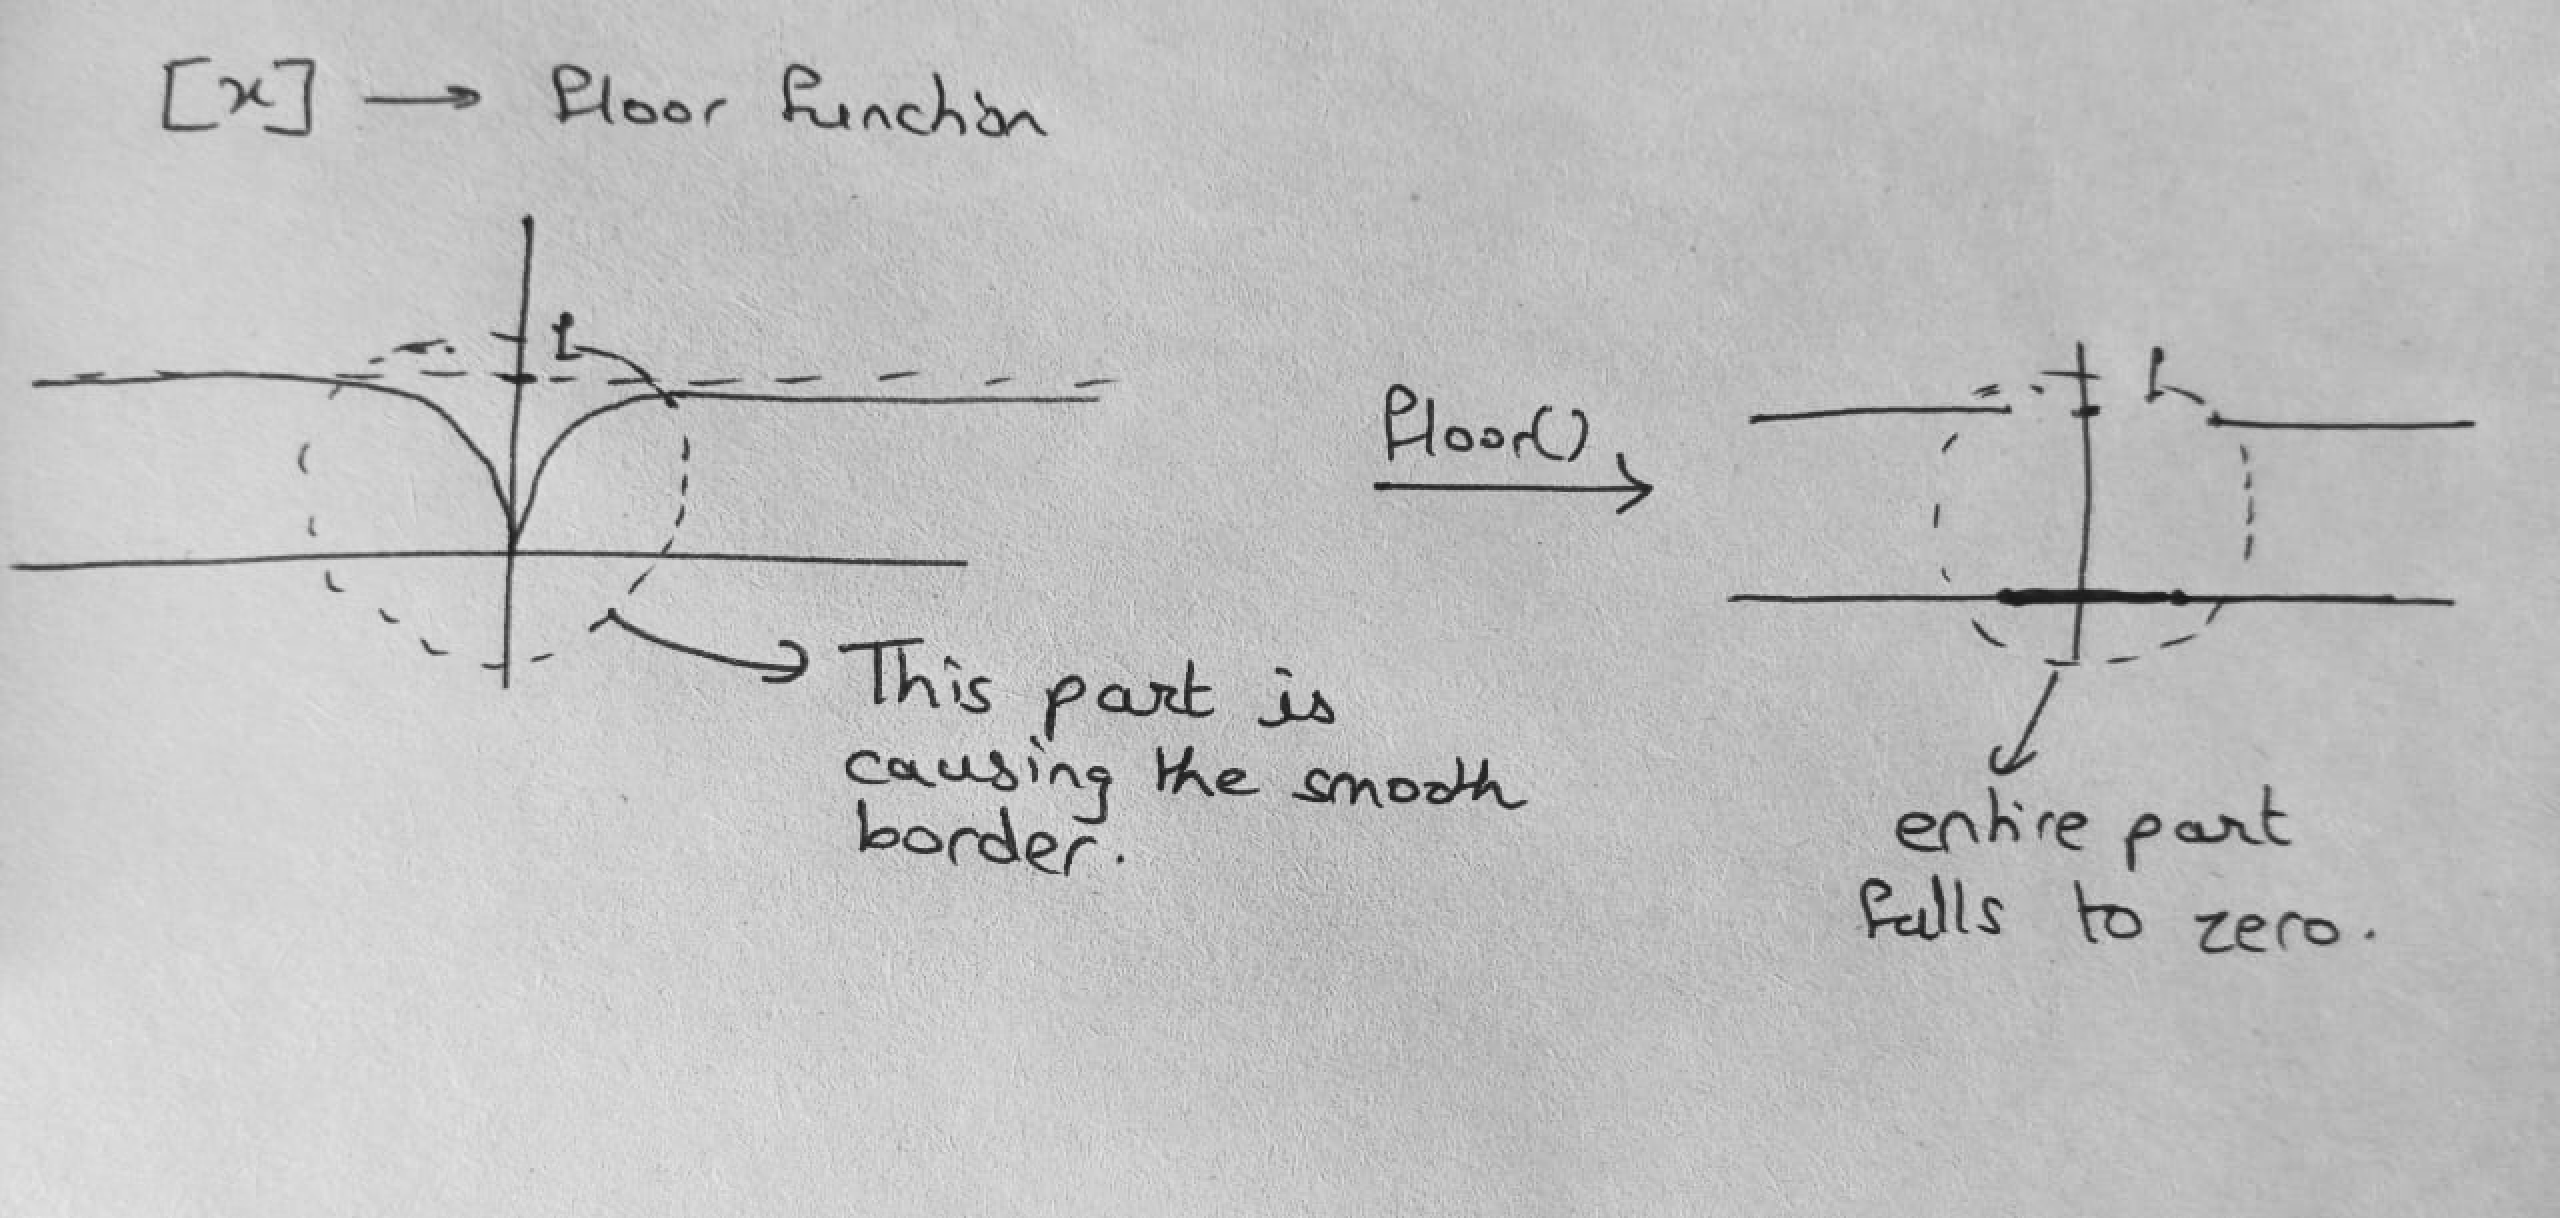 [x] → Floor function
1
1
Floor()
This part is
causing the smooth
border.
entire part
falls to zero.